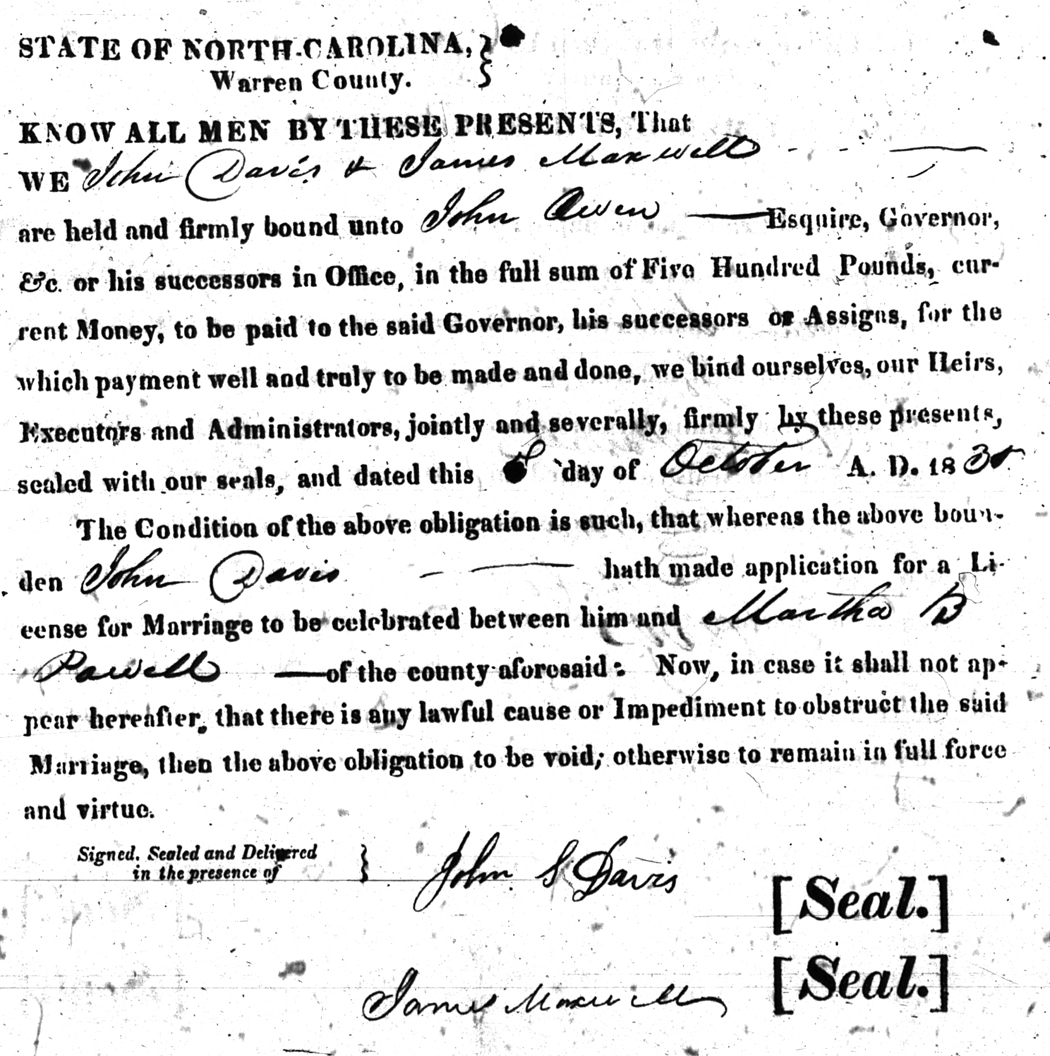 STATE OF NORTH-CAROLINA,
Warren County.
KNOW ALL MEN BY THESE PRESENTS, That
WE John Davis & James Maxwell
are held and firmly bound unto John Owen Esquire, Governor,
&c. or his successors in Office, in the full sum of Five Hundred Pounds, cur-
rent Money, to be paid to the said Governor, his successors or Assigns, for the
which payment well and truly to be made and done, we bind ourselves, our Heirs,
Executors and Administrators, jointly and severally, firmly by these presents,
sealed with our seals, and dated this day of October A. D. 18
The Condition of the above obligation is such, that whereas the above boun-
den John Davis hath made application for a Li-
cense for Marriage to be celebrated between him and Martha B
Powell of the county aforesaid: Now, in case it shall not ap-
pear hereafter, that there is any lawful cause or Impediment to obstruct the said
Marriage, then the above obligation to be void; otherwise to remain in full force
and virtue.
Signed, Sealed and Delivered
in the presence of
John S Davis [Seal.]
James Maxwell [Seal.]